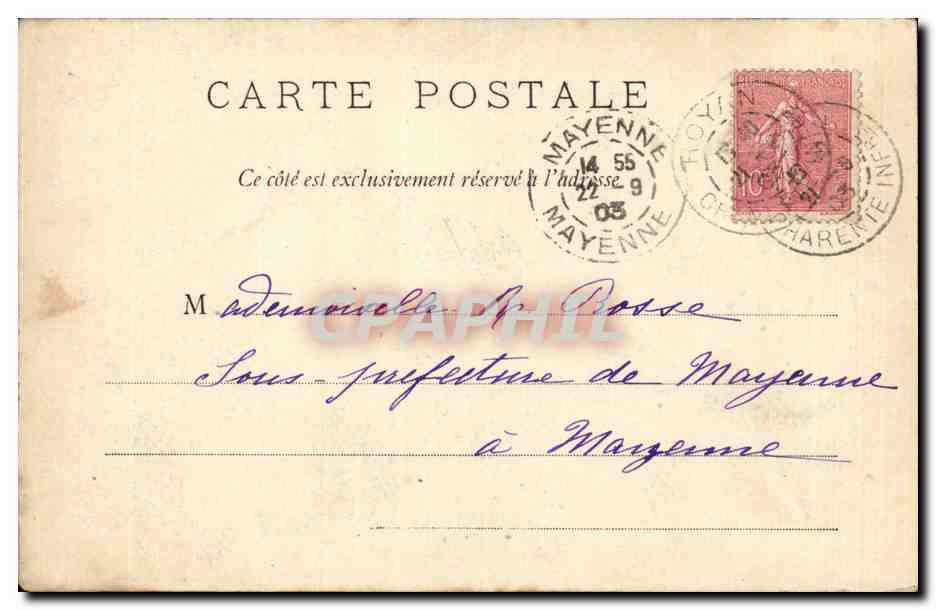 CARTE POSTALE
Ce côté est exclusivement réservé à l'adresse
MAYENNE
14 55
22 - 9
03
MAYENNE
ROYAN
CHARENTE INFRE
10
Mademoiselle R. Bosse
CPAPHIL
Sous-préfecture de Mayenne
à Mayenne